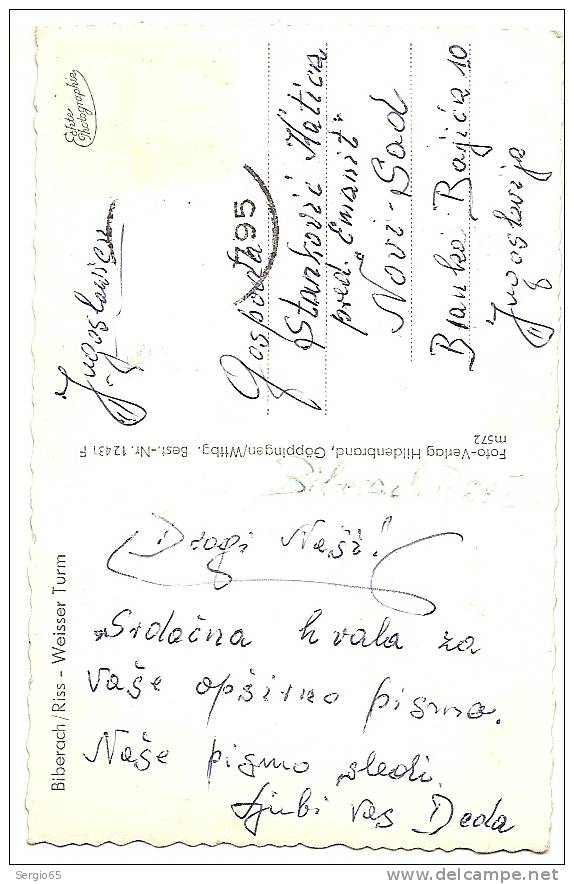 Echte
Photographie
Jugoslawien
795
Gospođa
Stanković Katica
pred. "Emanit"
Novi-Sad
Branka Bajića 10
Jugoslavija
Foto-Verlag Hildenbrand, Göppingen/Wttbg. Best.-Nr. 12431 F
m572
Biberach/Riss - Weisser Turm
Dragi Naši!
Srdačna hvala za
vaše opširno pismo.
Naše pismo sledi.
Ljubi vas Deda
Sergio65
http://www.delcampe.net